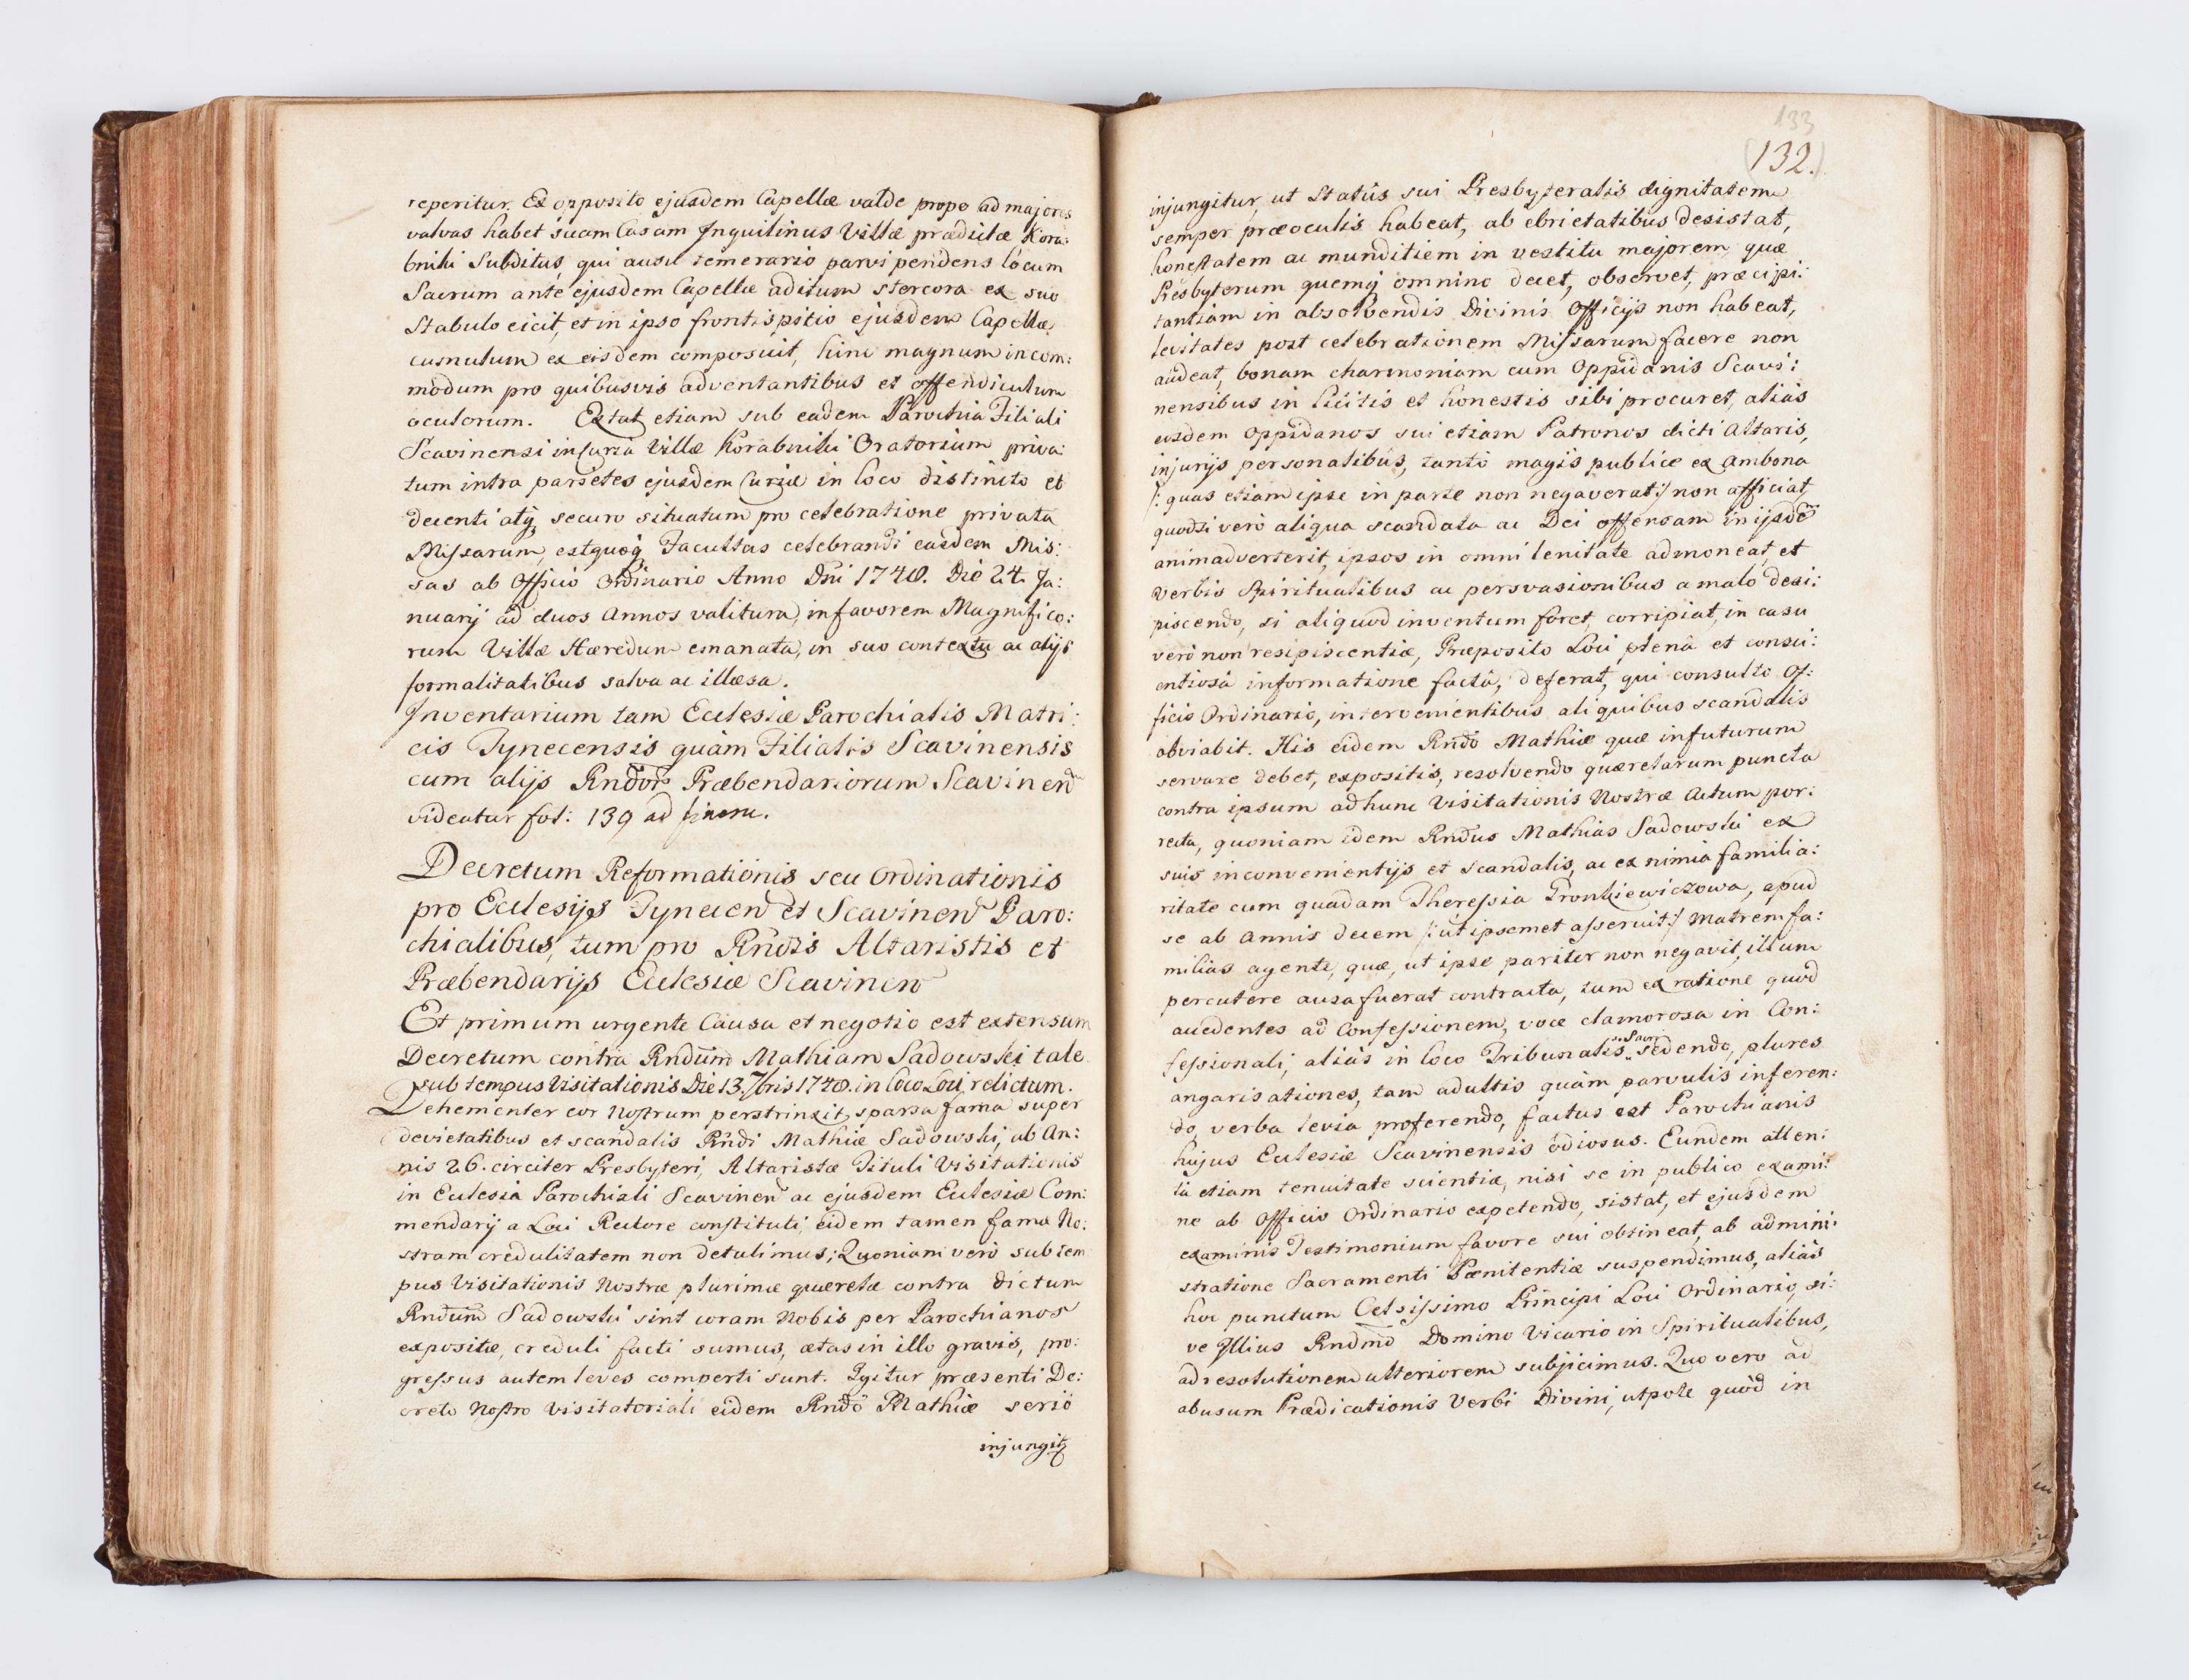 reperitur. Ex opposito ejusdem Capellæ valde prope ad majores
valvas habet suam Casam Inquilinus Villæ prædictæ Kora:
bniki Subditus, qui ausu temerario parvi pendens locum
Sacrum ante ejusdem Capellæ aditum stercora ex suo
Stabulo eicit, et in ipso frontispicio ejusdem Capellæ
cumulum ex eisdem composuit, hinc magnum incom:
modum pro quibusvis adventantibus et offendiculum
oculorum. Extat etiam sub eadem Parochia Filiali
Scavinensi in Curia Villæ Korabniki Oratorium priva:
tum intra parietes ejusdem Curiæ in loco distincto et
decenti atq securo situatum pro celebratione privata
Missarum, estquoq Facultas celebrandi easdem Mis:
sas ab Officio Ordinario Anno Dni 1748. Die 24. Ja:
nuarij ad duos Annos valitura, in favorem Magnifico:
rum Villæ Hæredum emanata, in suo contextu ac alijs
formalitatibus salva ac illæsa.
Inventarium tam Ecclesiæ Parochialis Matri:
cis Tynecensis quàm Filialis Scavinensis
cum alijs Rndor Præbendariorum Scavinen
videatur fol: 139 ad finem.
Decretum Reformationis seu Ordinationis
pro Ecclesijs Tynecen et Scavinen Paro:
chialibus, tum pro Rndis Altaristis et
Præbendarijs Ecclesiæ Scavinen
Et primum urgente Causa et negotio est extensum
Decretum contra Rndum Mathiam Sadowski tale
sub tempus Visitationis Die 13. 7bris 1748. in loco Loci relictum.
Vehementer cor Nostrum perstrinxit, sparsa fama super
devietatibus et scandalis Rndi Mathiæ Sadowski, ab An:
nis 26. circiter Presbyteri, Altaristæ Tituli Visitationis
in Eclesia Parochiali Scavinen ac ejusdem Eclesiæ Com:
mendarij a Loci Rectore constituti, eidem tamen famæ No:
stram credulitatem non detulimus; Quoniam verò sub tem
pus Visitationis Nostræ plurimæ quærelæ contra dictum
Rndum Sadowski sint coram Nobis per Parochianos
expositæ, creduli facti sumus, ætas in illo gravis, pro:
gressus autem leves comperti sunt. Igitur præsenti De:
creto Nostro Visitatoriali eidem Rndo Mathiæ seriò
injungitq
133
(132.)
injungitur, ut Statûs sui Presbyteralis dignitatem
semper præoculis habeat, ab ebrietatibus desistat,
honestatem ac munditiem in vestitu majorem, quæ
Presbyterum quemq omnino decet, observet, præcipi:
tantiam in absolvendis Divinis Officijs non habeat,
levitates post celebrationem Missarum facere non
audeat, bonam charmoniam cum Oppidanis Scavi:
nensibus in licitis et honestis sibi procuret, aliàs
eisdem Oppidanos sui etiam Patronos dicti Altaris,
injurijs personalibus, tantò magis publicè ex Ambona
/: quas etiam ipse in parte non negaverat :/ non afficiat,
quodsi verò aliqua scandala ac Dei offensam in ijsdem
animadverterit, ipsos in omni lenitate admoneat, et
verbis Spiritualibus ac persvasionibus a malo desi:
piscendo, si aliquod inventum foret, corripiat, in casu
verò non resipiscentiæ, Præposito Loci plenâ et consci:
entiosâ informatione factâ, deferat, qui consulto Of:
ficio Ordinario, intervenientibus aliquibus scandalis
obviabit. His eidem Rndo Mathiæ quæ in futurum
servare debet, expositis, resolvendo quærelarum puncta
contra ipsum ad hunc Visitationis Nostræ Actum por:
recta, quoniam idem Rndus Mathias Sadowski ex
suis inconvenientijs et scandalis, ac ex nimia familia:
ritate cum quadam Theressia Fronkiewiczowa, apud
se ab Annis decem /: ut ipsemet asseruit :/ Matrem fa:
milias agente, quæ, ut ipse pariter non negavit, illum
percutere ausa fuerat contracta, tum ex ratione quod
accedentes ad Confessionem, voce clamorosa in Con:
fessionali, aliàs in loco Tribunalis Sacri sedendo, plures
angarisationes, tam adultis quàm parvulis inferen:
do, verba levia proferendo, factus est Parochianis
hujus Eclesiæ Scavinensis odiosus. Eundem atten:
tâ etiam tenuitate scientiæ, nisi se in publico exami:
ne ab Officio Ordinario expetendo, sistat, et ejusdem
examinis Testimonium favore sui obtineat, ab admini:
stratione Sacramenti Pœnitentiæ suspendimus, aliàs
hoc punctum Celsissimo Principi Loci Ordinario, si:
ve Illius Rndmo Domino Vicario in Spiritualibus,
ad resolutionem ulteriorem subjicimus. Quo vero ad
abusum Prædicationis Verbi Divini, utpote quòd in